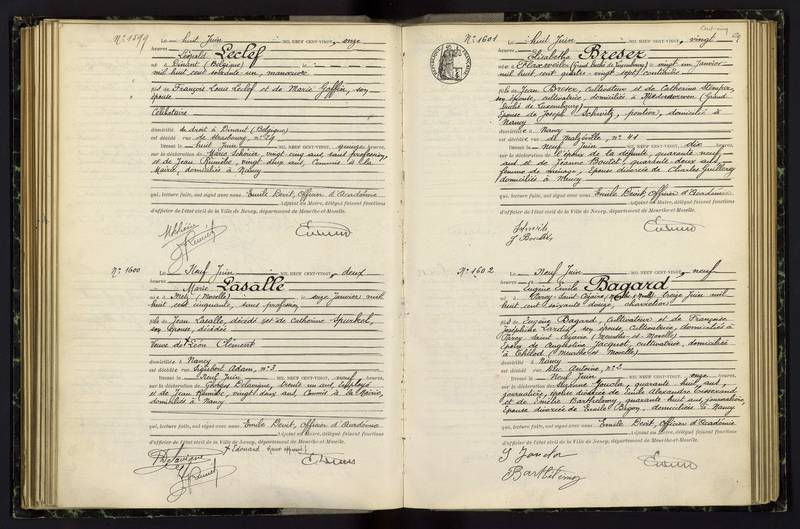 N° 1599
Le huit Juin MIL NEUF CENT-VINGT, onze
heures
Léopold Leclef
né à Dinant (Belgique) le
mil huit cent soixante un, manœuvre
fils de François Louis Leclef et de Marie Goffin, son
épouse
Célibataire
domicilié de droit à Dinant (Belgique)
est décédé rue de Strasbourg, n° 29
Dressé le huit Juin MIL NEUF CENT-VINGT, quinze heures
sur la déclaration de Marie vingt cinq ans, sans profession
et de Jean vingt deux ans, Commis à la
Mairie, domiciliés à Nancy
qui, lecture faite, ont signé avec nous Emile Devit, Officier d'Académie
Adjoint au Maire, délégué faisant fonctions
d'officier de l'état civil de la Ville de Nancy, département de Meurthe-et-Moselle.
N° 1600
Le Neuf Juin MIL NEUF CENT-VINGT, deux
heures
Marie Lasalle
née à Metz (Moselle) le onze janvier mil
huit cent cinquante, sans profession
fille de Jean Lasalle, décédé et de Catherine
son épouse, décédée
Veuve de Léon Clément
domiciliée à Nancy
est décédée rue Sigisbert Adam, n° 3
Dressé le Neuf Juin MIL NEUF CENT-VINGT, neuf heures
sur la déclaration de Georges Delavigne, trente un ans, Employé
et de Jean vingt deux ans Commis à la Mairie,
domiciliés à Nancy
qui, lecture faite, ont signé avec nous Emile Devit, Officier d'Académie
Adjoint au Maire, délégué faisant fonctions
d'officier de l'état civil de la Ville de Nancy, département de Meurthe-et-Moselle.
Edouard
Delavigne
N° 1601
Le huit Juin MIL NEUF CENT-VINGT, vingt
heures
Elisabetha Breser
née à (Grand Duché de Luxembourg) le vingt un janvier
mil huit cent quatre-vingt sept, couturière
fille de Jean Breser, cultivateur et de Catherine
son épouse, cultivatrice, domiciliés à (Grand
Duché de Luxembourg)
Epouse de Joseph domicilié à
Nancy
domiciliée à Nancy
est décédée rue de Malzéville, n° 41
Dressé le Neuf Juin MIL NEUF CENT-VINGT, dix heures
sur la déclaration de l'époux de la défunte, quarante neuf
ans et de Jeanne Boutet, quarante deux ans,
femme de ménage, épouse divorcée de Charles
domiciliés à Nancy
qui, lecture faite, ont signé avec nous Emile Devit, Officier d'Académie
Adjoint au Maire, délégué faisant fonctions
d'officier de l'état civil de la Ville de Nancy, département de Meurthe-et-Moselle.
N° 1602
Le Neuf Juin MIL NEUF CENT-VINGT, neuf
heures
Eugène Emile Bagard
né à Parey-Saint-Césaire le treize Juin mil
huit cent soixante douze, charretier
fils de Eugène Bagard, Cultivateur et de Françoise
Joséphine son épouse, Cultivatrice, domiciliés à
Parey Saint Césaire (Meurthe-et-Moselle)
Epoux de Augustine Jacquot, cultivatrice, domiciliée
à Thélod (Meurthe et Moselle)
domicilié à Nancy
est décédé rue n° 2
Dressé le Neuf Juin MIL NEUF CENT-VINGT, onze heures
sur la déclaration de quarante huit ans,
journalière, épouse divorcée de Emile Alexandre
et de Emélie Barthélemy, quarante huit ans, journalière,
Epouse divorcée de Emile domiciliées à Nancy
qui, lecture faite, ont signé avec nous Emile Devit, Officier d'Académie
Adjoint au Maire, délégué faisant fonctions
d'officier de l'état civil de la Ville de Nancy, département de Meurthe-et-Moselle.
Barthélémy